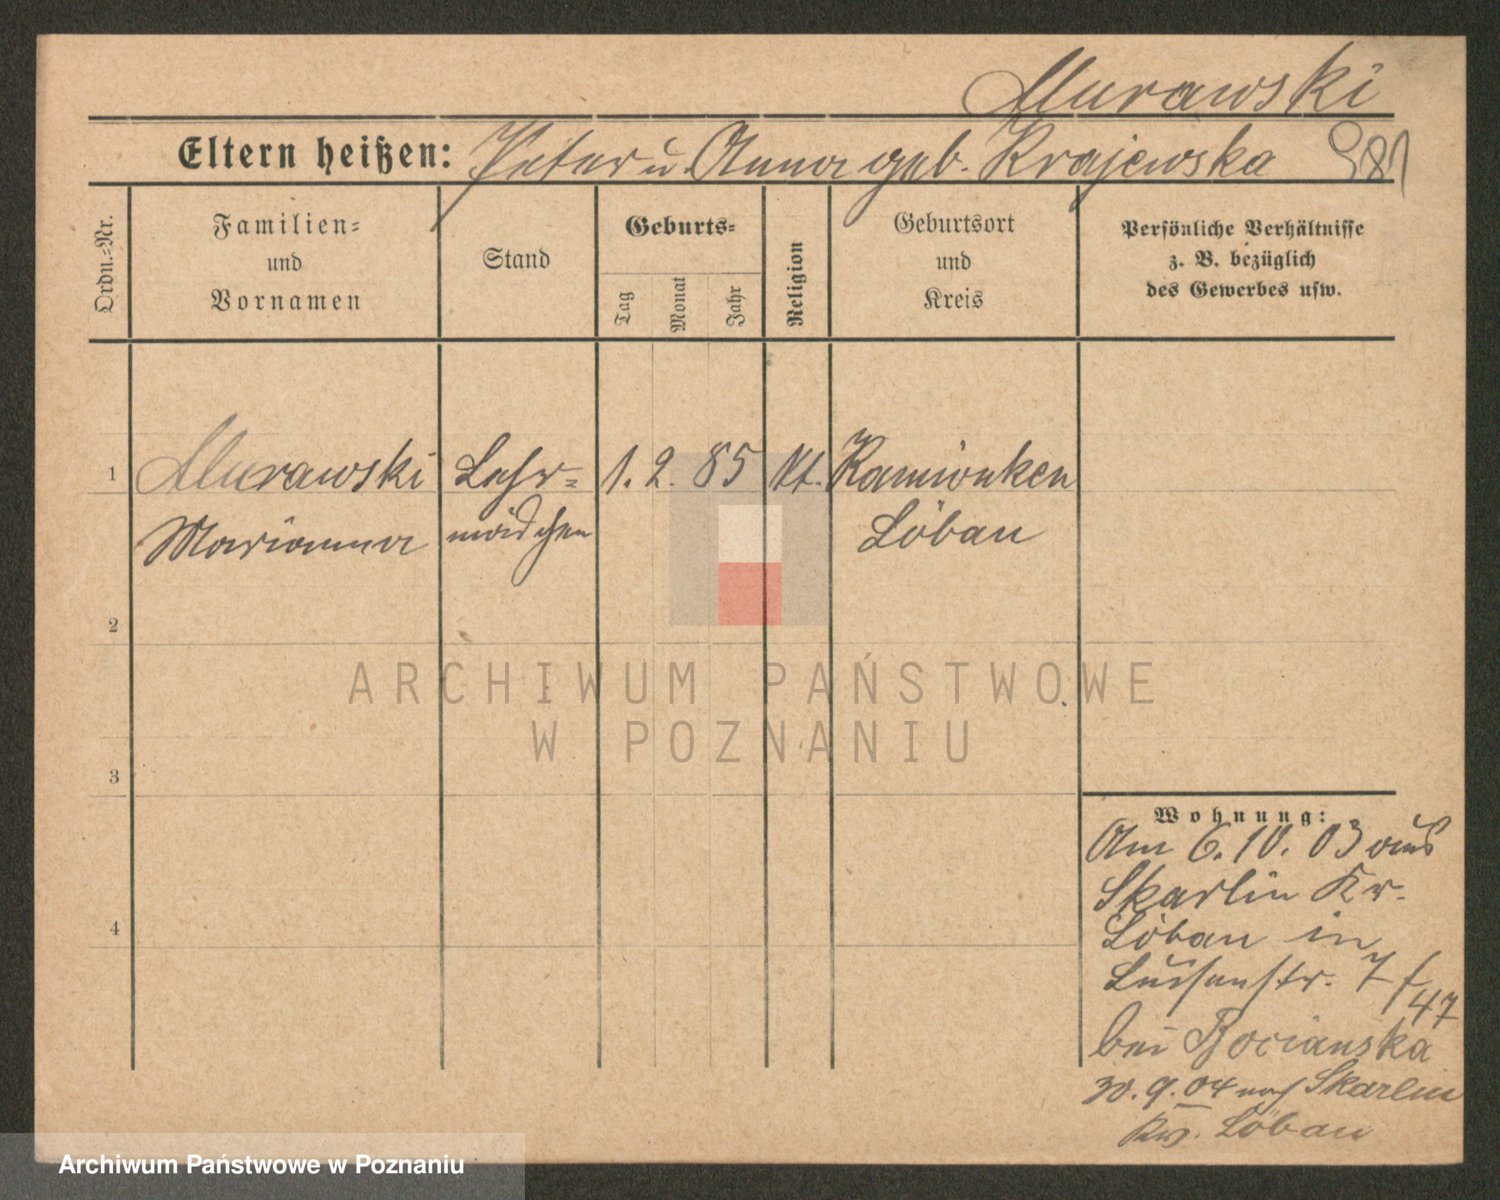 Murawski
Eltern heißen: Peter u. Anna geb. Krajewska 981
Ordn.-Nr.
Familien-
und
Vornamen
Stand
Geburts-
Tag
Monat
Jahr
Religion
Geburtsort
und
Kreis
Persönliche Verhältnisse
z. B. bezüglich
des Gewerbes usw.
1 Murawski Lehr- 1. 2. 85 kt. Kamionken
Marianna mädchen Löbau
2
3
4
Wohnung:
Am 6. 10. 03 aus
Skarlin Kr.
Löbau in
Luisenstr. 7
47
bei Bocianska
30. 9. 04 nach Skarlin
Kr. Löbau
ARCHIWUM PAŃSTWOWE
W POZNANIU
Archiwum Państwowe w Poznaniu